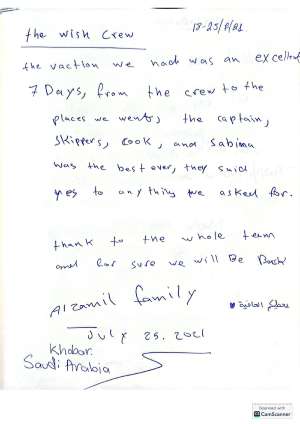 the wish crew
the vaction we had was an excellent
7 Days, from the crew to the
places we went, the captain,
skippers, cook, and sabina
was the best ever, they said
yes to anything we asked for.
thank to the whole team
and for sure we will Be Back
Alzamil family
July 25. 2021
Khobar.
Saudi Arabia
Scanned with
CamScanner